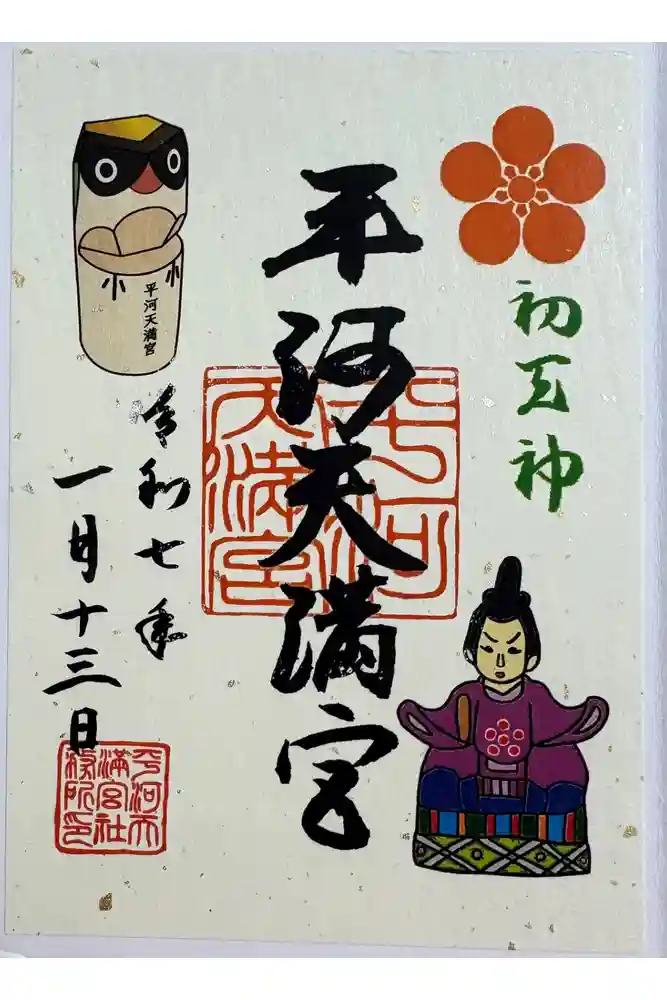 初天神
平河天満宮
平河天満宮
小小
平河天満宮
令和七年
一月十三日
平河天
満宮社
務所印